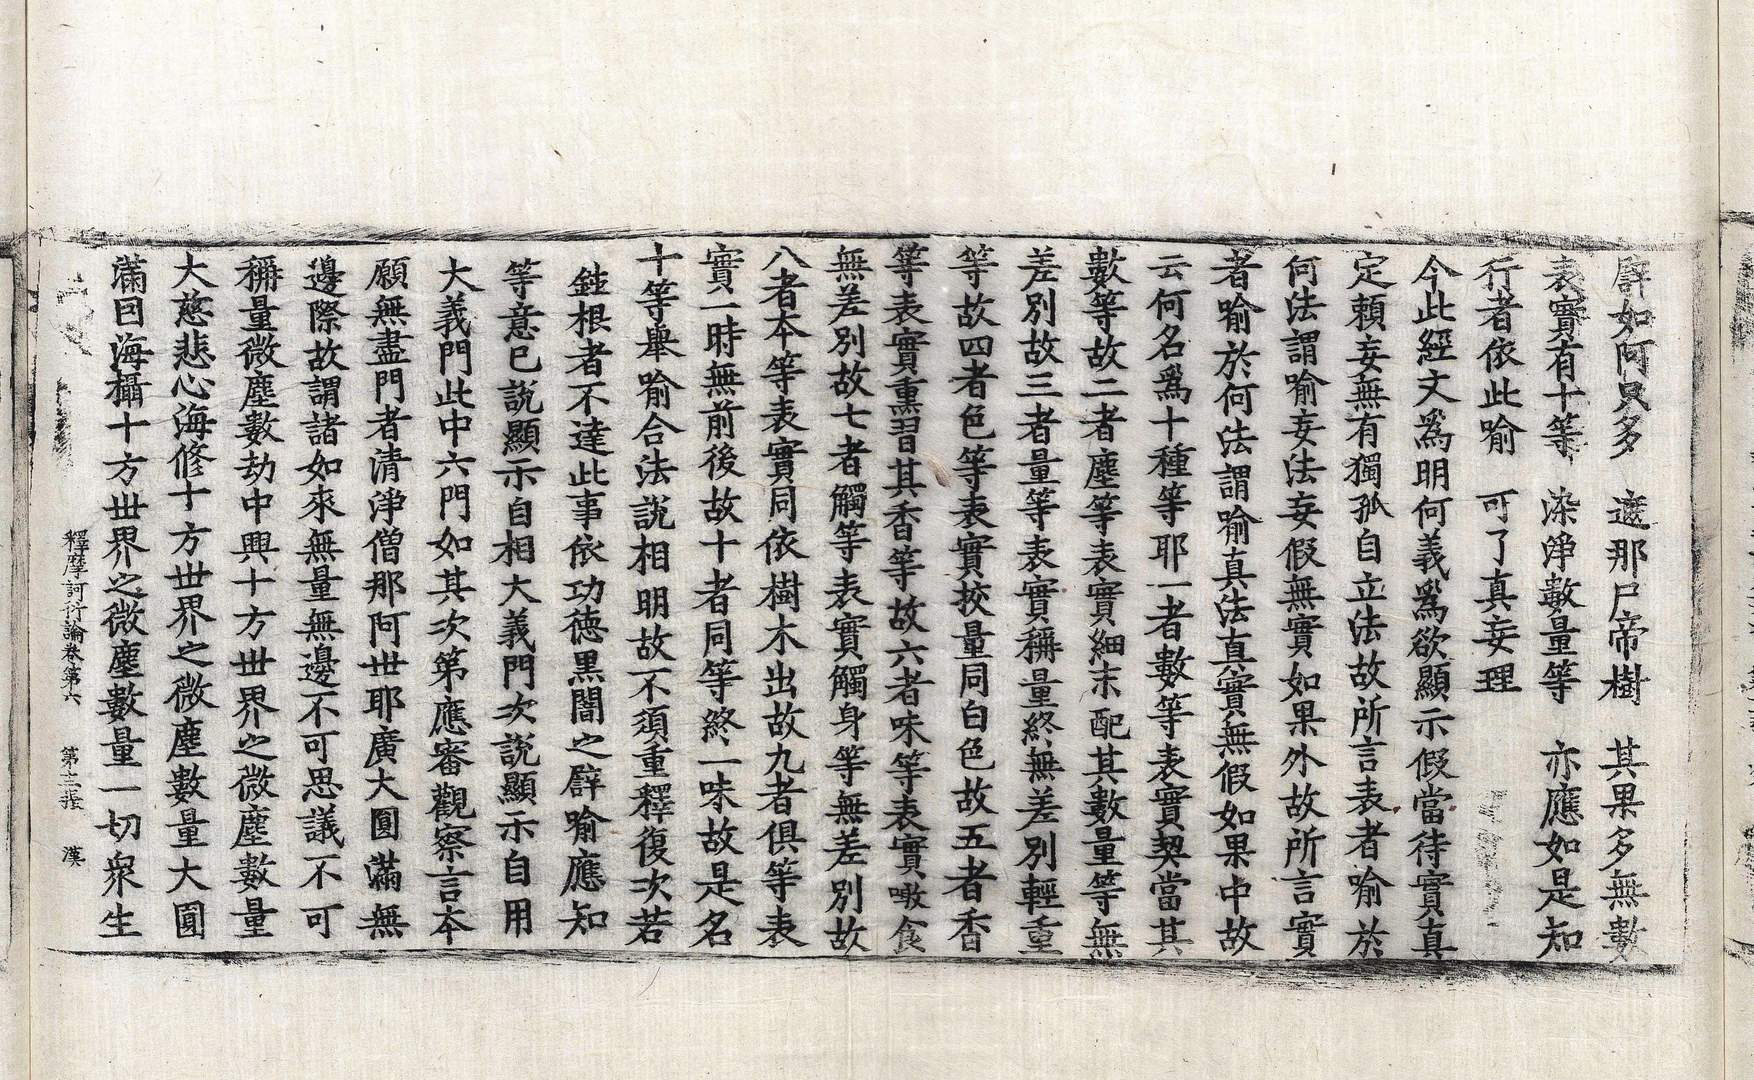 譬如阿只多　遮那尸帝樹　其果多無數
表實有十等　染淨數量等　亦應如是知
行者依此喻　可了真妄理
今此經文爲明何義爲欲顯示假當待實真
定賴妄無有獨孤自立法故所言表者喻於
何法謂喻妄法妄假無實如果外故所言實
者喻於何法謂喻真法真實無假如果中故
云何名爲十種等耶一者數等表實契當其
數等故二者塵等表實細末配其數量等無
差別故三者量等表實稱量終無差別輕重
等故四者色等表實挍量同白色故五者香
等表實熏習其香等故六者味等表實噉食
無差別故七者觸等表實觸身等無差別故
八者本等表實同依樹木出故九者俱等表
實一時無前後故十者同等終一味故是名
十等舉喻合法說相明故不須重釋復次若
鈍根者不達此事依功德黑闇之譬喻應知
等意已說顯示自相大義門次說顯示自用
大義門此中六門如其次第應審觀察言本
願無盡門者清淨僧那阿世耶廣大圓滿無
邊際故謂諸如來無量無邊不可思議不可
稱量微塵數劫中興十方世界之微塵數量
大慈悲心海修十方世界之微塵數量大圓
滿因海攝十方世界之微塵數量一切衆生
釋摩訶衍論卷第六　第十二張　漢